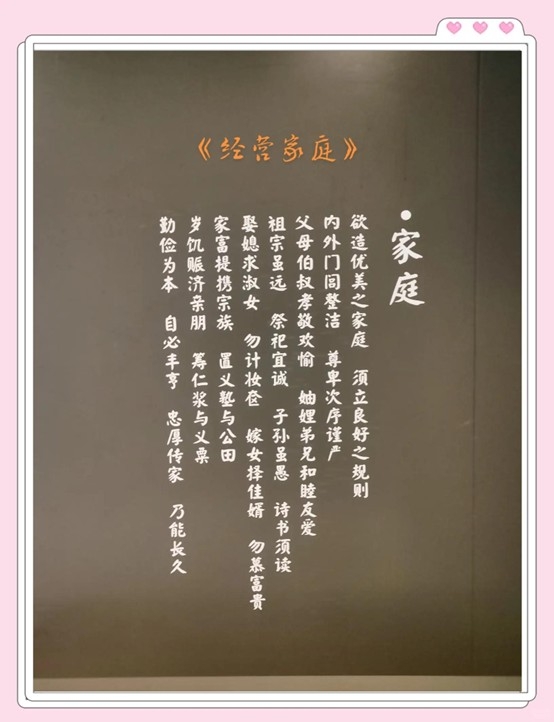 《经营家庭》
·家庭
欲造优美之家庭 须立良好之规则
内外门闾整洁 尊卑次序谨严
父母伯叔孝敬欢愉 妯娌弟兄和睦友爱
祖宗虽远 祭祀宜诚 子孙虽愚 诗书须读
娶媳求淑女 勿计妆奁 嫁女择佳婿 勿慕富貴
家富提携宗族 置义塾与公田
岁饥赈济亲朋 筹仁浆与义粟
勤俭为本 自必丰亨 忠厚传家 乃能长久